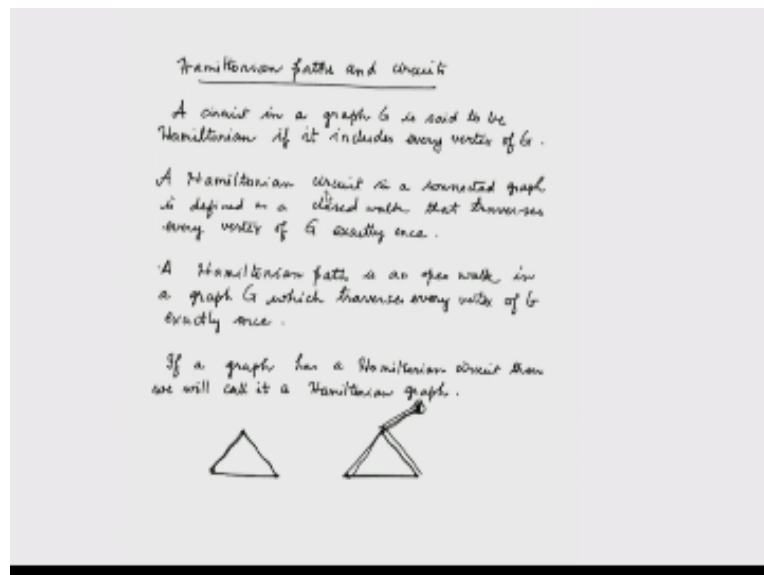 Hamiltonian paths and circuits
A circuit in a graph G is said to be
Hamiltonian if it includes every vertex of G.
A Hamiltonian circuit in a connected graph
is defined as a closed walk that traverses
every vertex of G exactly once.
A Hamiltonian path is an open walk in
a graph G which traverses every vertex of G
exactly once.
If a graph has a Hamiltonian circuit then
we will call it a Hamiltonian graph.